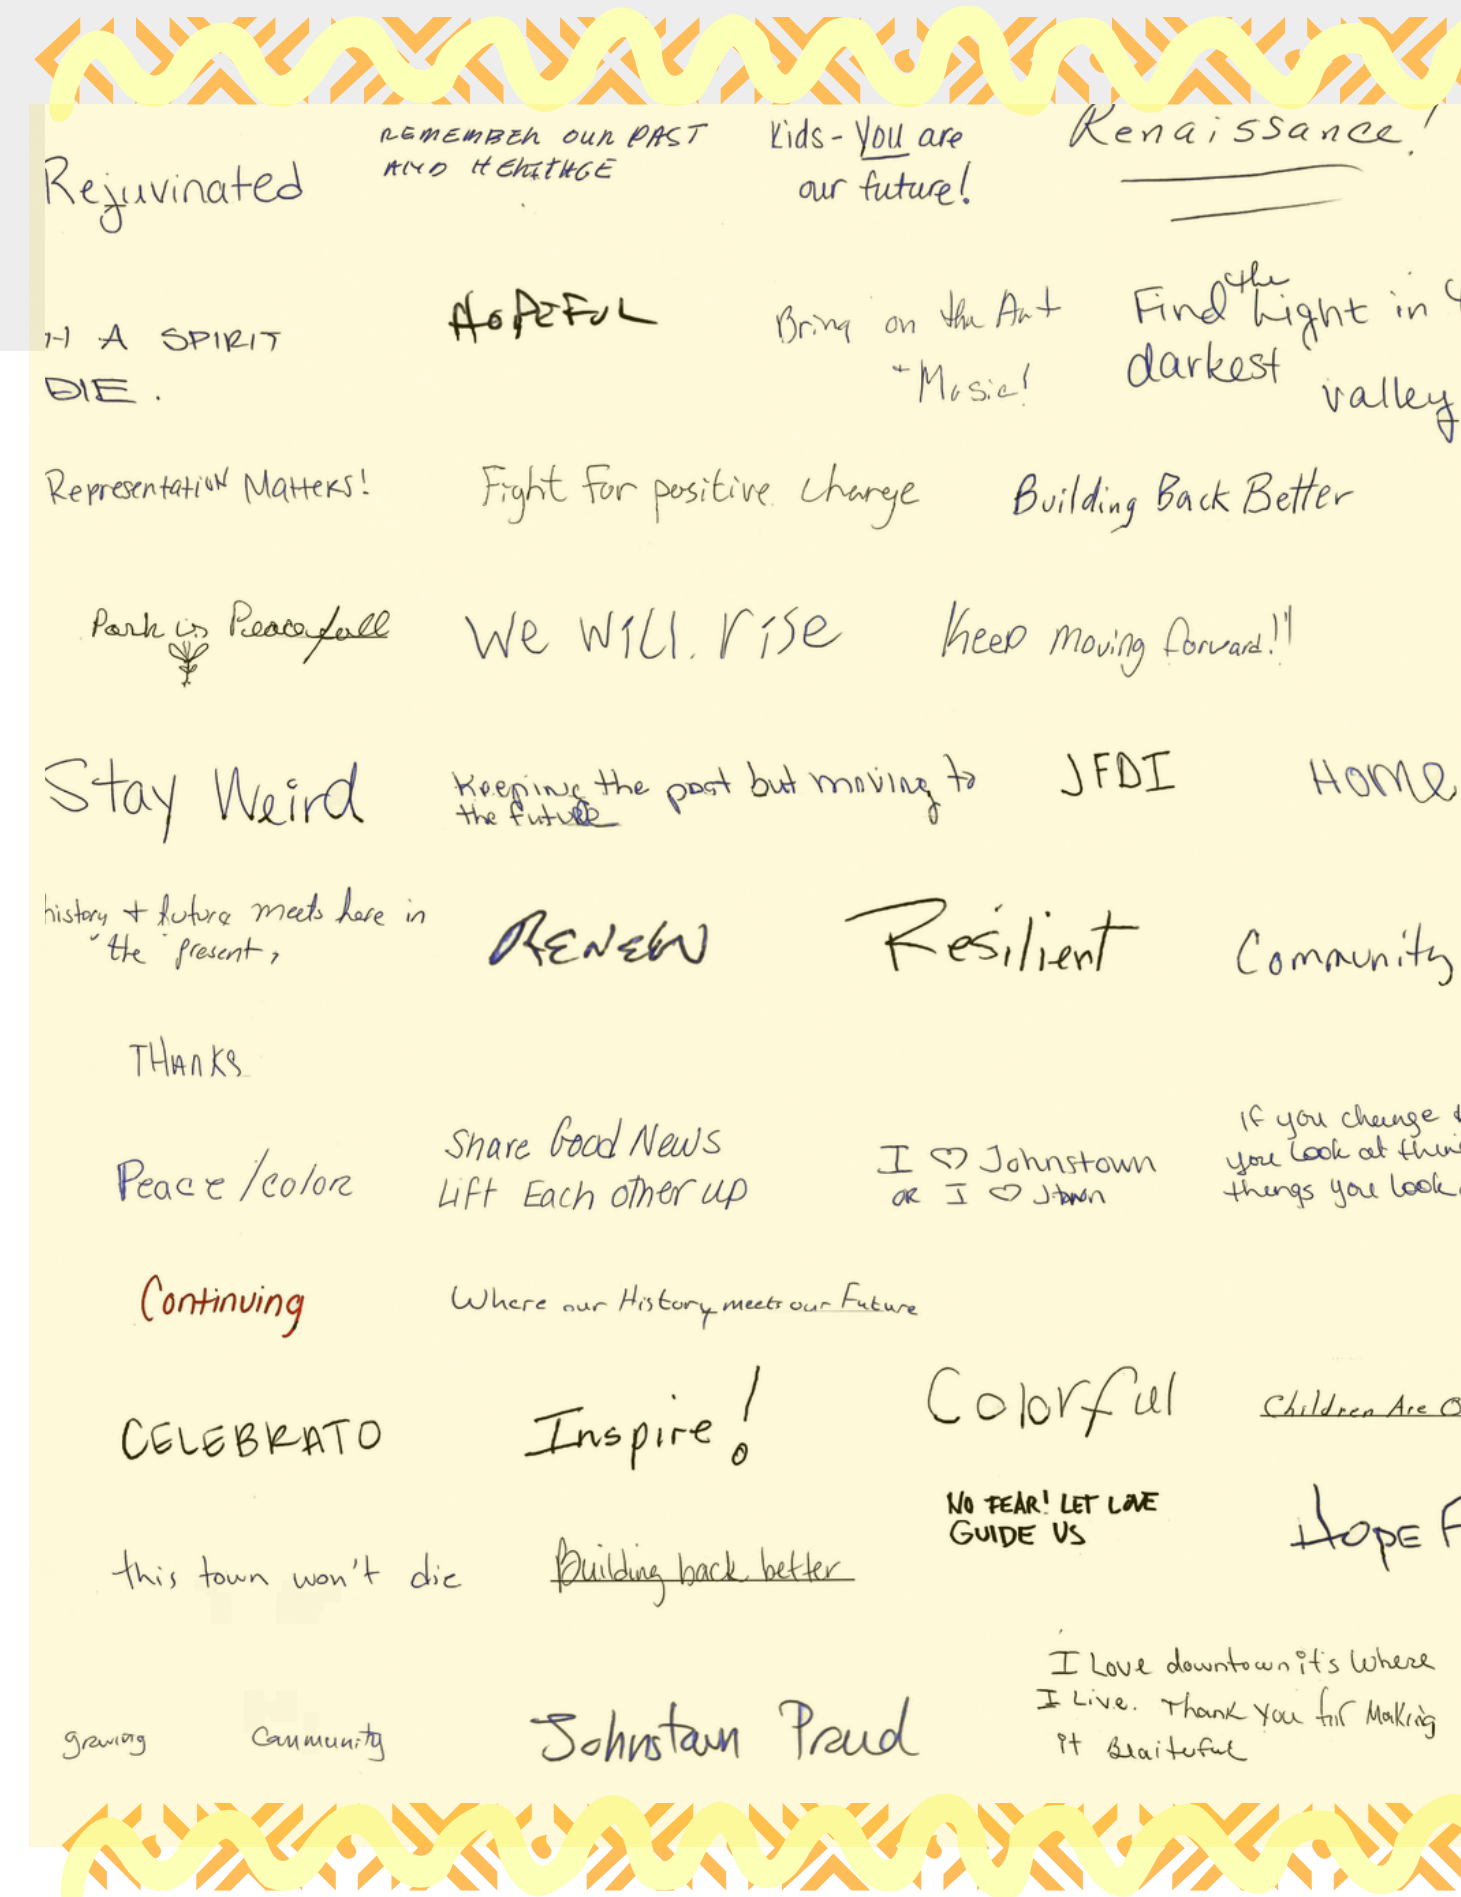 Rejuvinated
REMEMBER OUR PAST
AND HERITAGE
Kids - You are
our future!
Renaissance!
A SPIRIT
DIE.
HOPEFUL
Bring on the Art
+ Music!
Find the Light in
darkest
valley
Representation Matters!
Fight for positive change
Building Back Better
Park is Peacefull
We will rise
Keep moving forward!!
Stay Weird
Keeping the past but moving to
the future
JFDI
HOME
history + future meets here in
the present,
RENEW
Resilient
Community
THANKS
Peace/color
Share Good News
Lift Each other up
I ♡ Johnstown
OR I ♡ Jtown
If you change
you look at
things you look
Continuing
Where our History meets our Future
CELEBRATO
Inspire!
Colorful
Children Are
NO FEAR! LET LOVE
GUIDE US
HOPE
this town won't die
Building back better
I Love downtown it's where
I Live. Thank you for Making
it Beaituful
growing
Community
Johnstown Proud